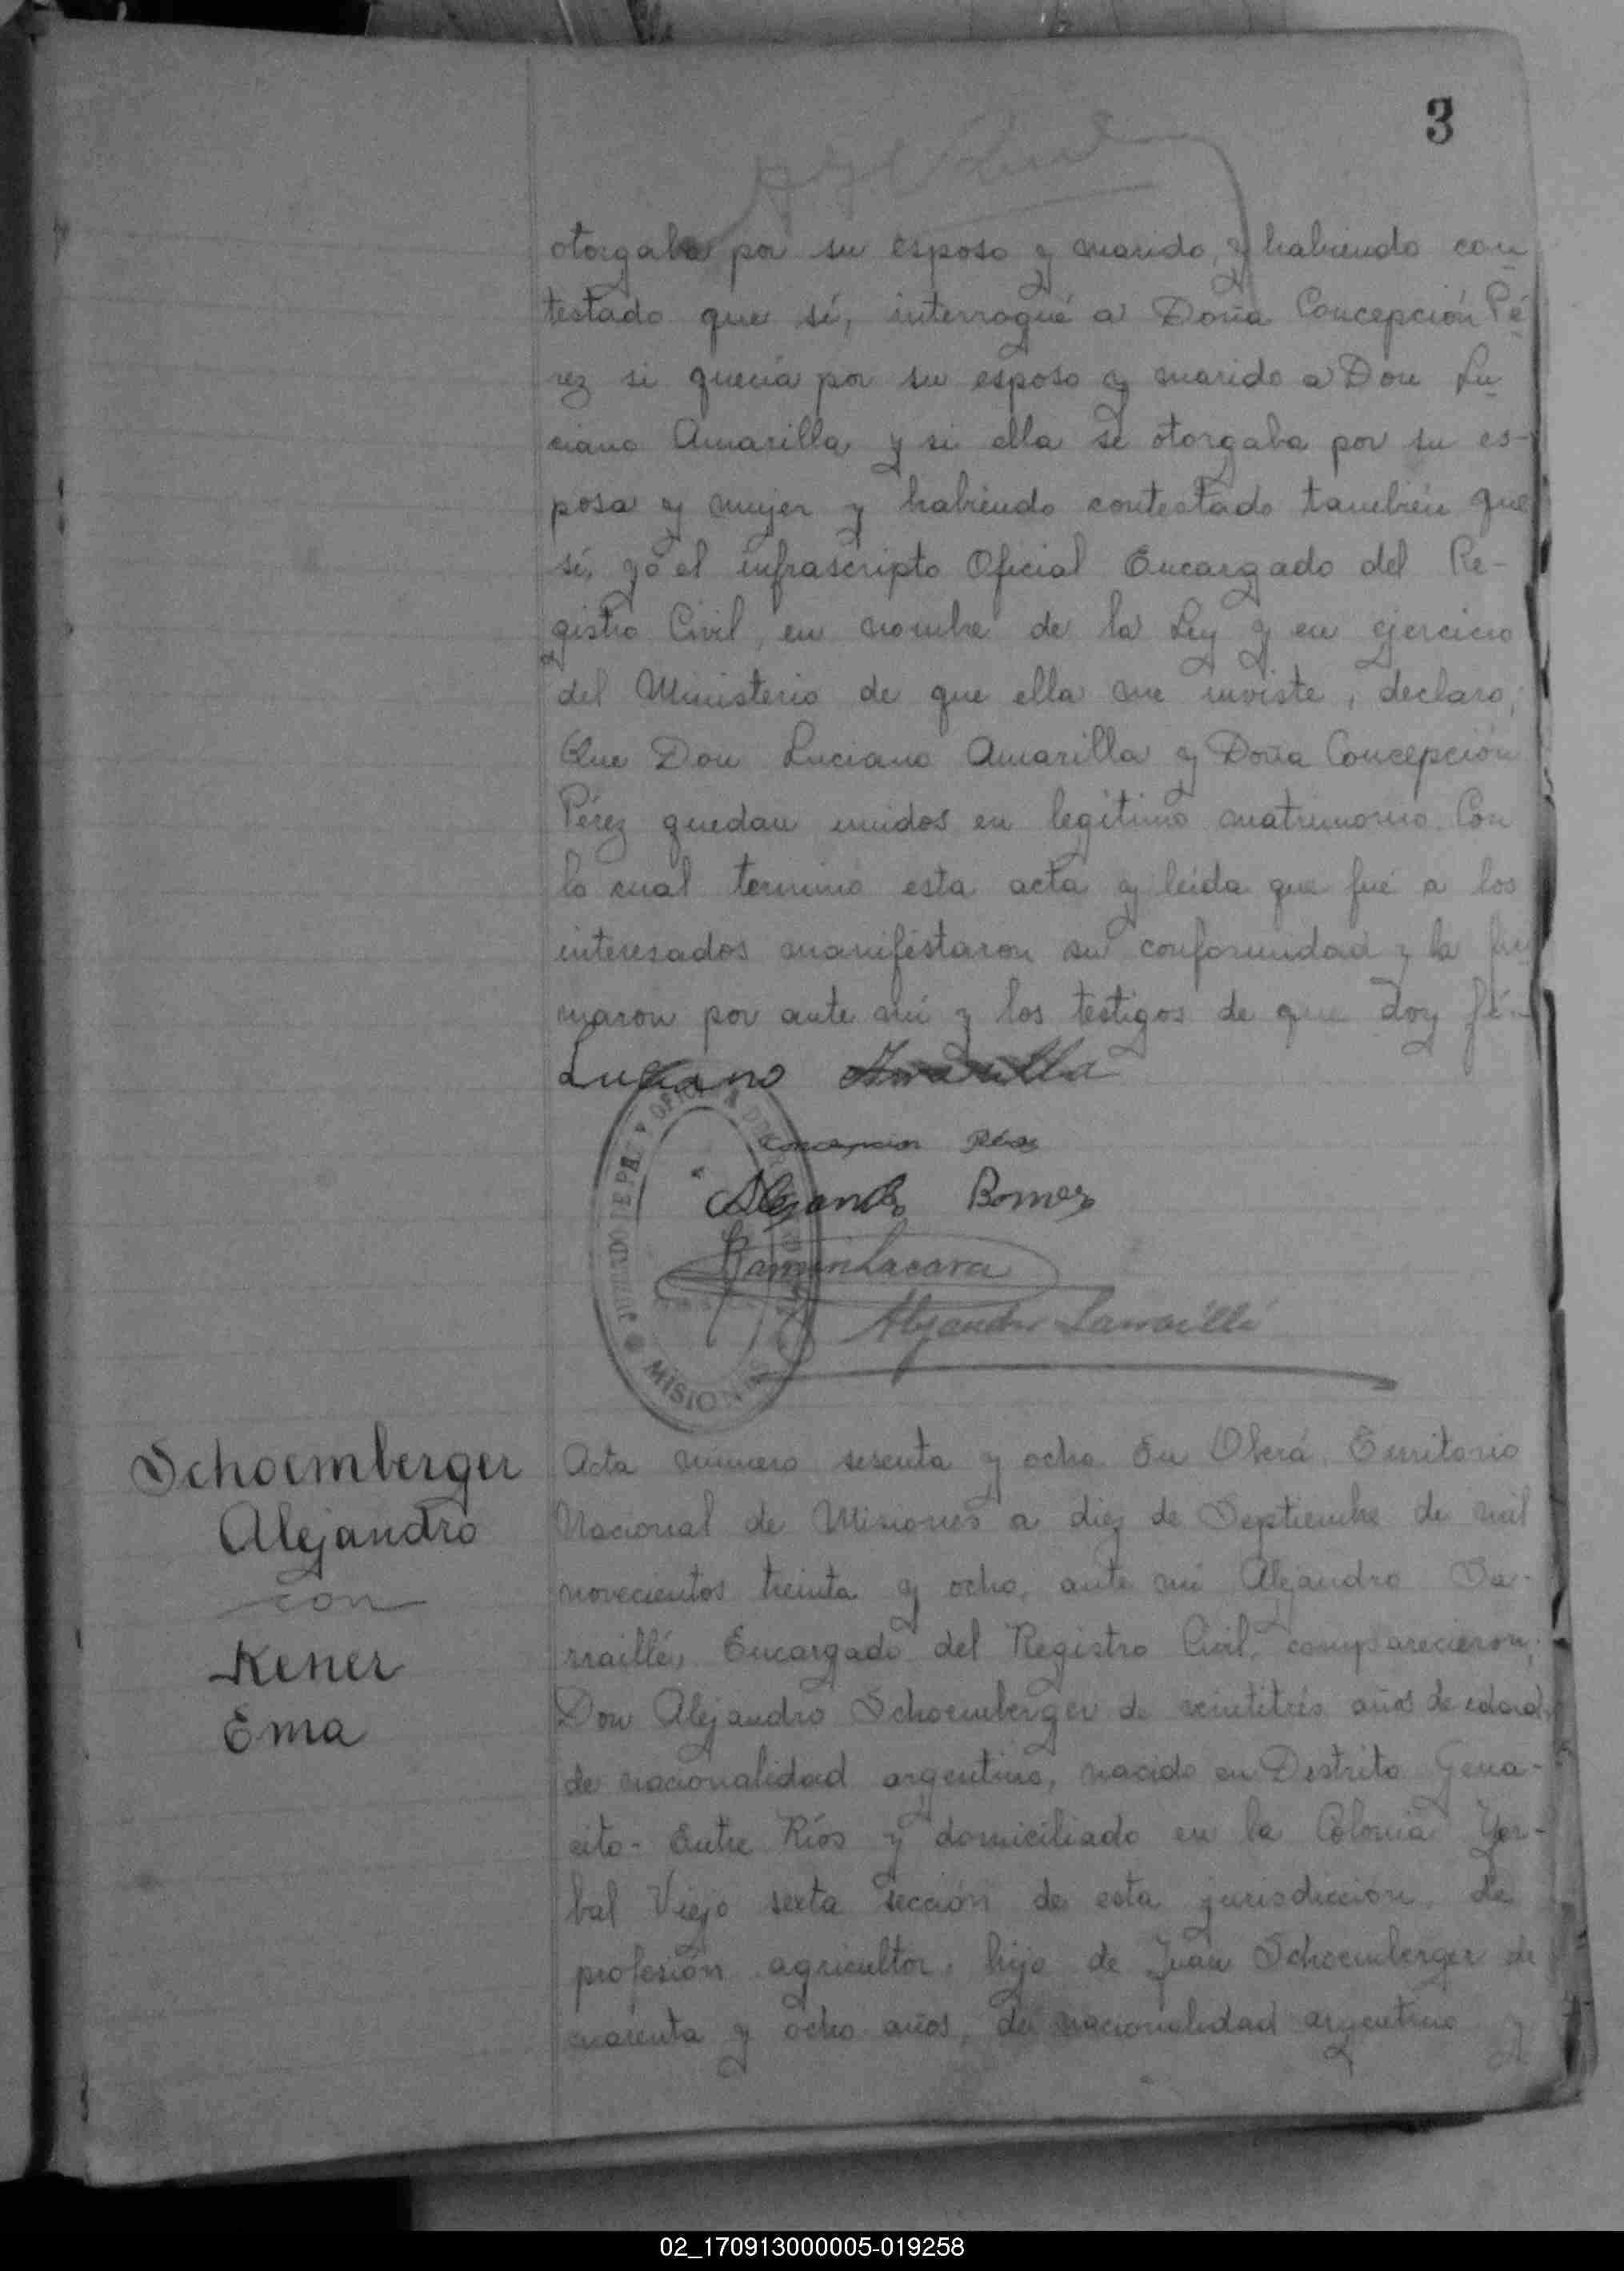 3
otorgaba por su esposo y marido, y habiendo con
testado que sí, interrogué a Doña Concepción Pé
rez si quería por su esposo y marido a Don Lu
ciano Amarilla y si ella se otorgaba por su es-
posa y mujer y habiendo contestado también que
sí, yo el infrascripto Oficial Encargado del Re-
gistro Civil, en nombre de la Ley y en ejercicio
del Ministerio de que ella me inviste, declaro;
Que Don Luciano Amarilla y Doña Concepción
Pérez quedan unidos en legítimo matrimonio. Con
lo cual terminó esta acta y leída que fué a los
interesados manifestaron su conformidad y la fir
maron por ante mí y los testigos de que doy fé.-
Luciano Amarilla
Concepcion Pérez
Alejandro
Ramon Lacava
Alejandro Larraillé
JUZGADO DE PAZ Y OFICINA
MISIONES
Schoemberger
Alejandro
con
Kener
Ema
Acta número sesenta y ocho En Oberá, Territorio
Nacional de Misiones a diez de Septiembre de mil
novecientos treinta y ocho, ante mí Alejandro La-
rraillé, Encargado del Registro Civil, comparecieron;
Don Alejandro Schoemberger de veintitrés años de edad,
de nacionalidad argentino, nacido en Distrito Gena-
cito- Entre Ríos y domiciliado en la Colonia Yer-
bal Viejo sexta sección de esta jurisdicción, de
profesión agricultor, hijo de Juan Schoemberger de
cuarenta y ocho años, de nacionalidad argentino y
02_170913000005-019258